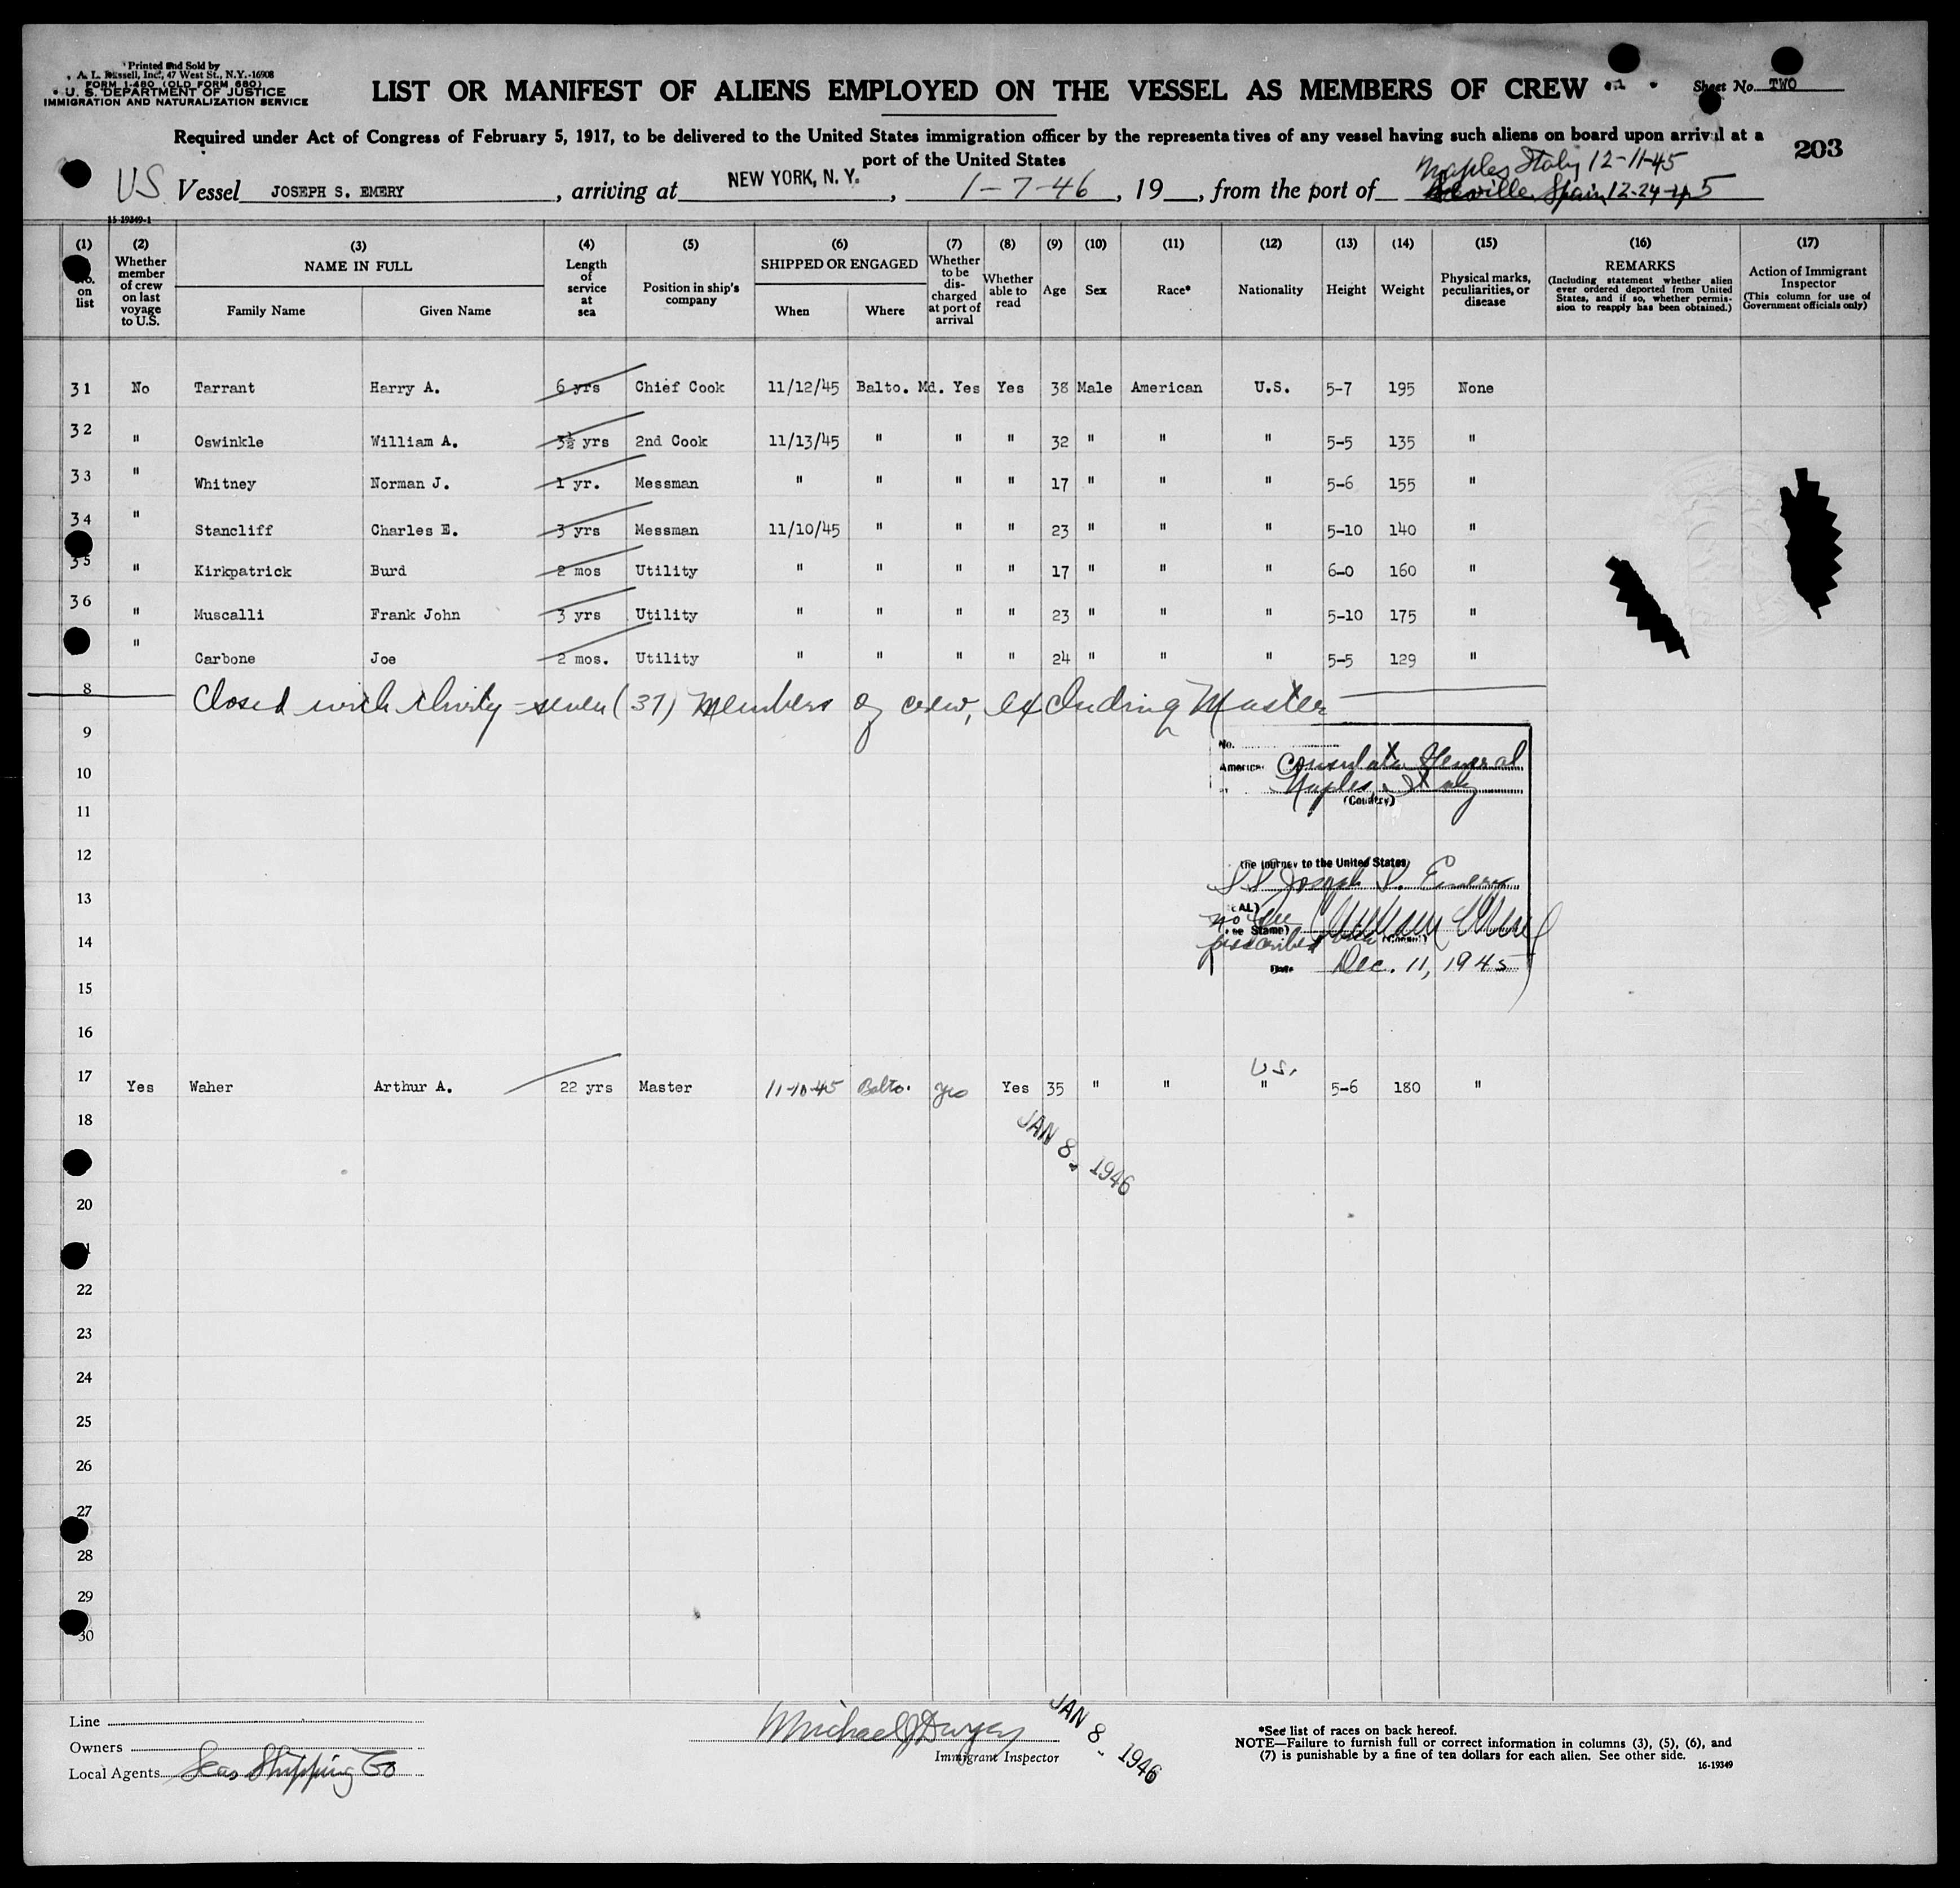 Printed and Sold by
A. L. Russell, Inc., 47 West St., N.Y.-16908
FORM I-480 (OLD FORM 680)
U. S. DEPARTMENT OF JUSTICE
IMMIGRATION AND NATURALIZATION SERVICE
LIST OR MANIFEST OF ALIENS EMPLOYED ON THE VESSEL AS MEMBERS OF CREW
Sheet No. TWO
Required under Act of Congress of February 5, 1917, to be delivered to the United States immigration officer by the representatives of any vessel having such aliens on board upon arrival at a
port of the United States
203
Naples Italy 12-11-45
US Vessel JOSEPH S. EMERY, arriving at NEW YORK, N.Y., 1-7-46, 19__, from the port of Seville, Spain 12-24-45
(1) No. on list
(2) Whether member of crew on last voyage to U.S.
(3) NAME IN FULL Family Name Given Name
(4) Length of service at sea
(5) Position in ship's company
(6) SHIPPED OR ENGAGED When Where
(7) Whether to be discharged at port of arrival
(8) Whether able to read
(9) Age
(10) Sex
(11) Race*
(12) Nationality
(13) Height
(14) Weight
(15) Physical marks, peculiarities, or disease
(16) REMARKS (Including statement whether alien ever ordered deported from United States, and if so, whether permission to reapply has been obtained.)
(17) Action of Immigrant Inspector (This column for use of Government officials only)
31 No Tarrant Harry A. 6 yrs Chief Cook 11/12/45 Balto. Md. Yes Yes 38 Male American U.S. 5-7 195 None
32 " Oswinkle William A. 3½ yrs 2nd Cook 11/13/45 " " " 32 " " " 5-5 135 "
33 " Whitney Norman J. 1 yr. Messman " " " " 17 " " " 5-6 155 "
34 " Stancliff Charles E. 3 yrs Messman 11/10/45 " " " 23 " " " 5-10 140 "
35 " Kirkpatrick Burd 2 mos Utility " " " " 17 " " " 6-0 160 "
36 " Muscalli Frank John 3 yrs Utility " " " " 23 " " " 5-10 175 "
" Carbone Joe 2 mos. Utility " " " " 24 " " " 5-5 129 "
8 Closed with thirty-seven (37) members of crew, excluding Master
9
No.
10
American Consulate General
Naples, Italy
(Country)
11
12
the journey to the United States
13
SS Joseph S. Emery
14
no fee prescribed
Dec. 11, 1945
Date
15
16
U.S.
17 Yes Waher Arthur A. 22 yrs Master 11-10-45 Balto. Yes Yes 35 " " " 5-6 180 "
18
JAN 8 - 1946
20
22
23
24
25
26
27
28
29
30
Line
Owners
Local Agents Seas Shipping Co
Michael J Dwyer
Immigrant Inspector
JAN 8 - 1946
*See list of races on back hereof.
NOTE—Failure to furnish full or correct information in columns (3), (5), (6), and
(7) is punishable by a fine of ten dollars for each alien. See other side.
16-19349